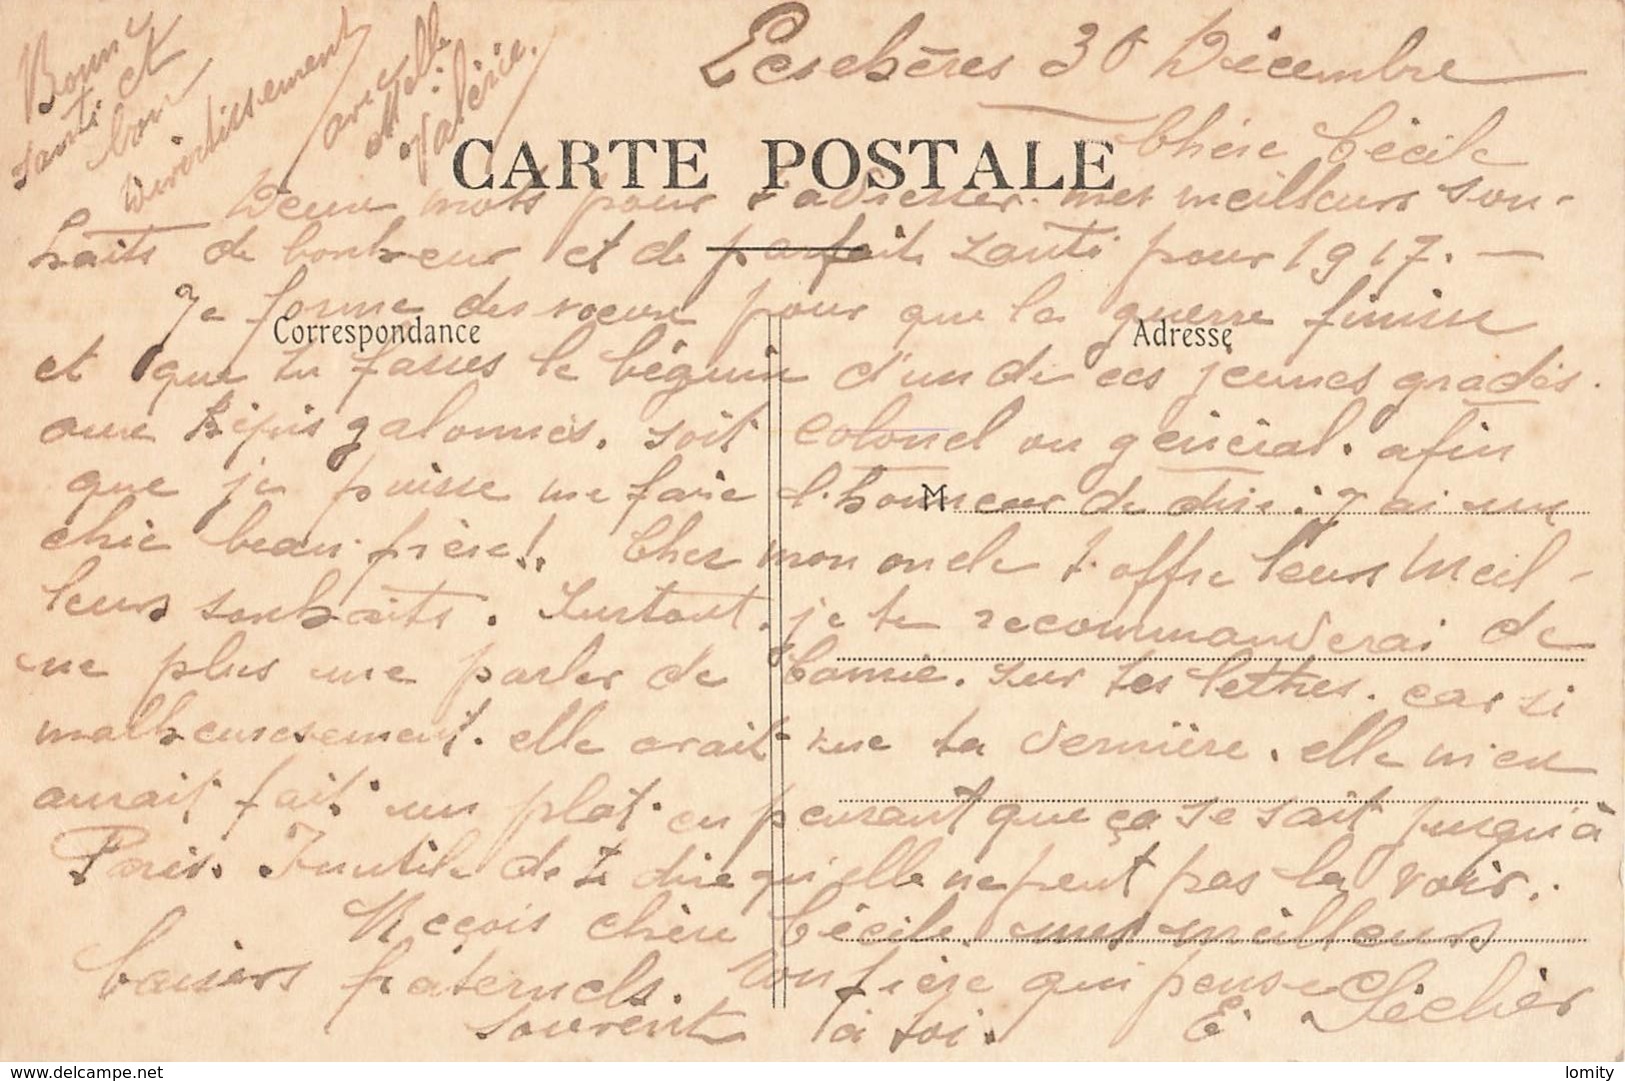 Bonne
santé et
bon
divertissement
avec
Melle
Valérie.
Leschères 30 Décembre
CARTE POSTALE
Chère Cécile
Deux mots pour t'adresser mes meilleurs sou-
haits de bonheur et de parfaite santé pour 1917. —
Je forme des vœux pour que la guerre finisse
Correspondance
Adresse
et que tu fasses le béguin d'un de ces jeunes gradés.
aux képis galonnés. soit colonel ou général. afin
que je puisse me faire l'honneur de dire : J'ai un
M
chic beau-frère !. Chez mon oncle t'offre leurs meil-
leurs souhaits. Surtout. je te recommanderai de
ne plus me parler de Camie. sur tes lettres. car si
malheureusement. elle avait vue ta dernière. elle m'en
aurait fait un plat en pensant que ça se sait jusqu'à
Paris. Inutile de te dire qu'elle ne peut pas la voir.
Reçois chère Cécile mes meilleurs
baisers fraternels. Ton frère qui pense
souvent à toi. E. Péclier
lomity
www.delcampe.net